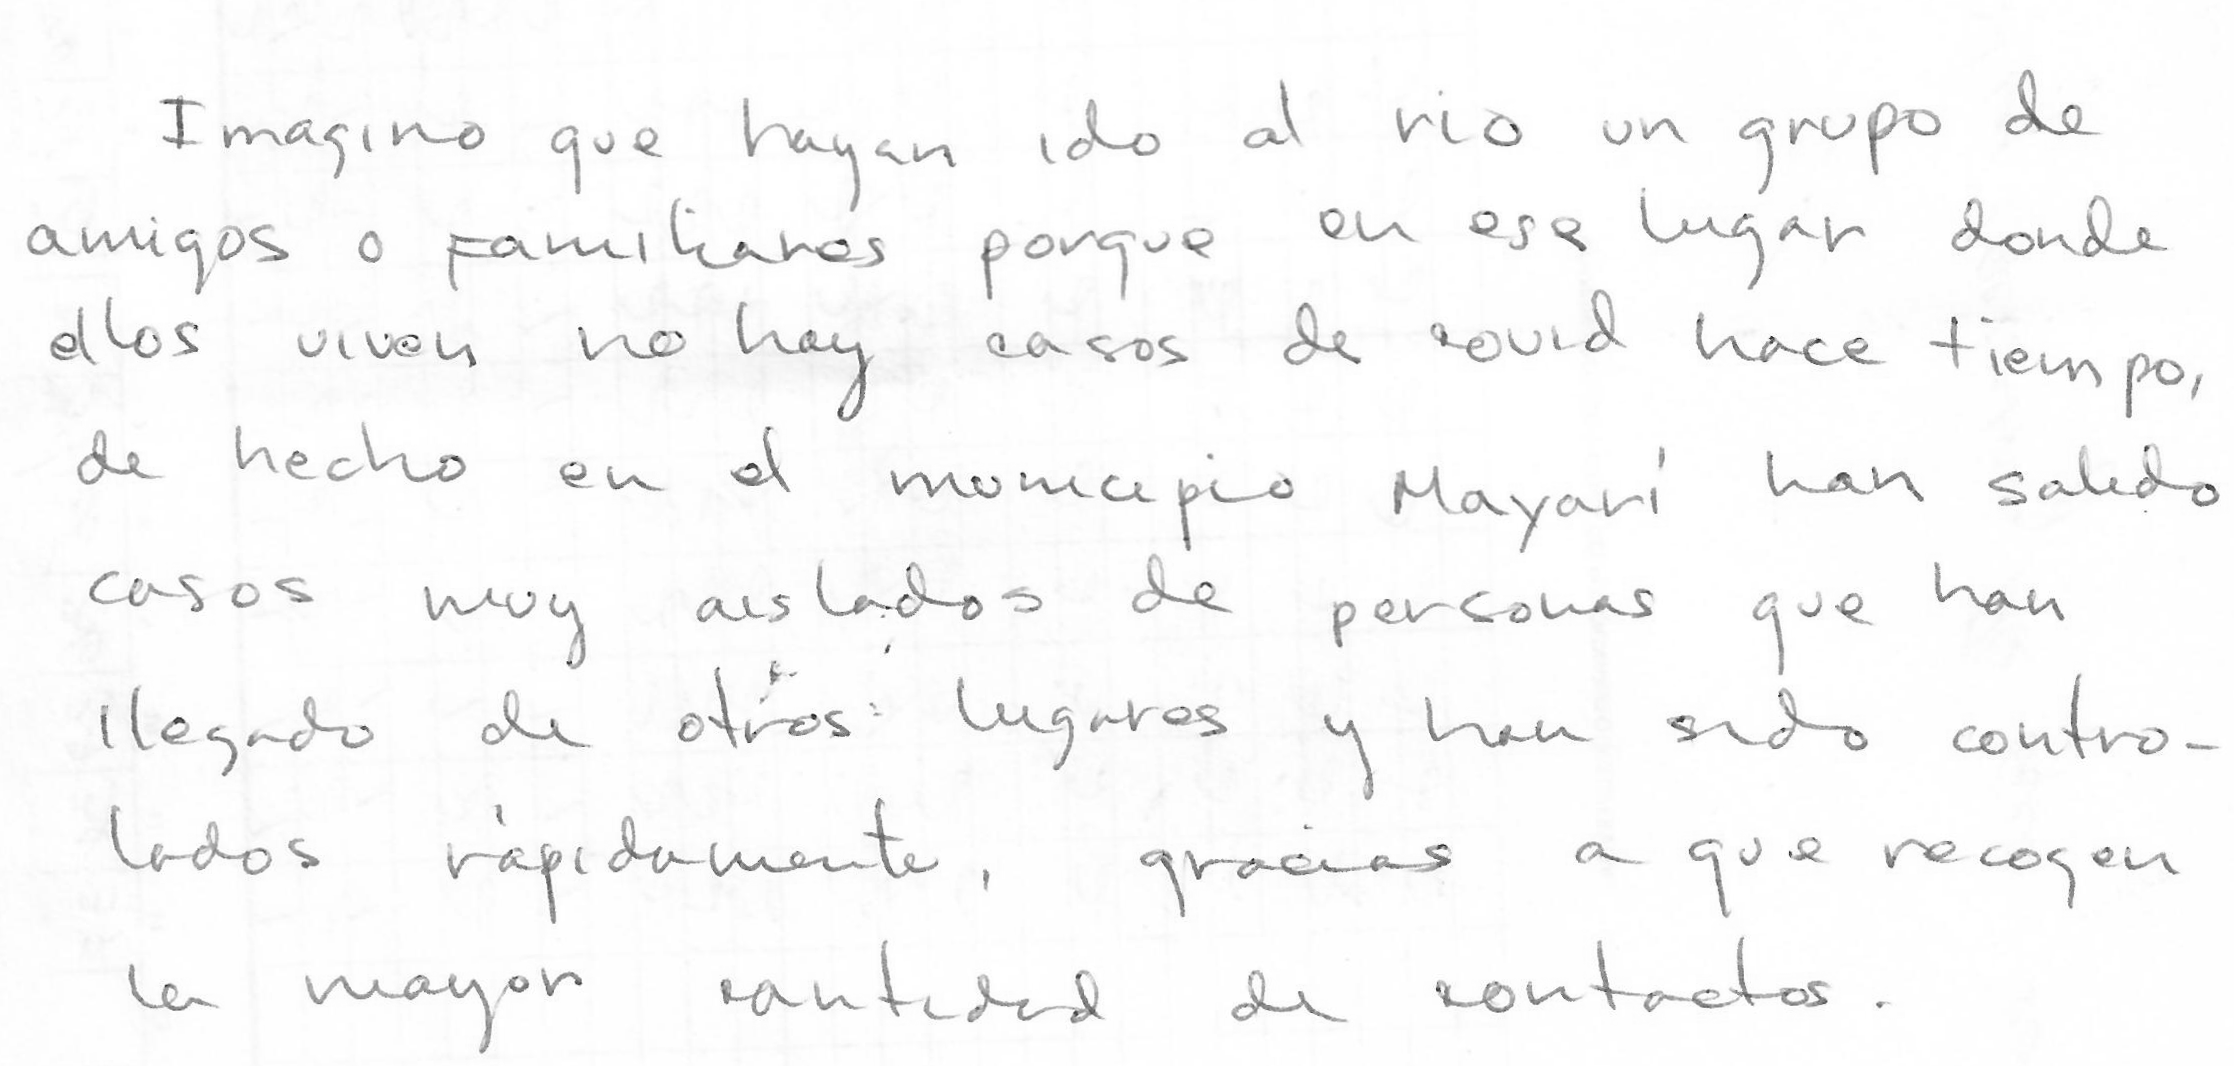 Imagino que hayan ido al rio un grupo de
amigos o familiares porque en ese lugar donde
ellos viven no hay casos de covid hace tiempo,
de hecho en el municipio Mayarí han salido
casos muy aislados de personas que han
llegado de otros lugares y han sido contro-
lados rápidamente, gracias a que recogen
la mayor cantidad de contactos.